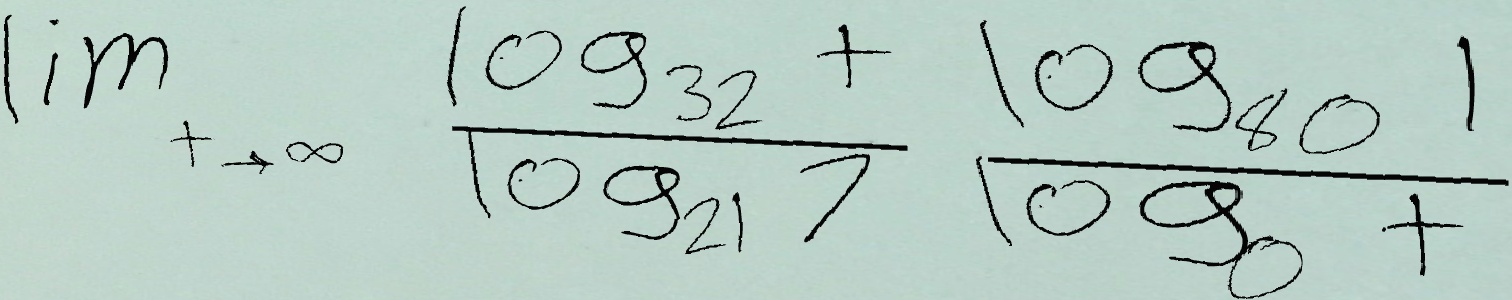 \lim_{t \to \infty} \frac{\log_{32} t}{\log_{21} 7} \frac{\log_{80} 1}{\log_{0} t}